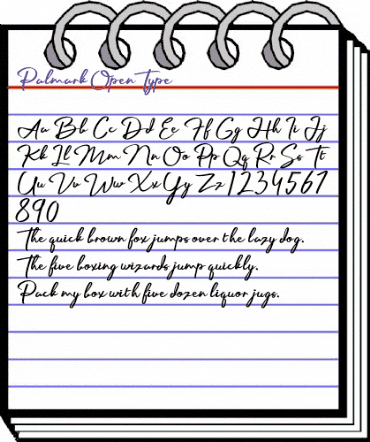 Palmark Open Type
Aa Bb Cc Dd Ee Ff Gg Hh Ii Jj
Kk Ll Mm Nn Oo Pp Qq Rr Ss Tt
Uu Vv Ww Xx Yy Zz 1234567
890
The quick brown fox jumps over the lazy dog.
The five boxing wizards jump quickly.
Pack my box with five dozen liquor jugs.